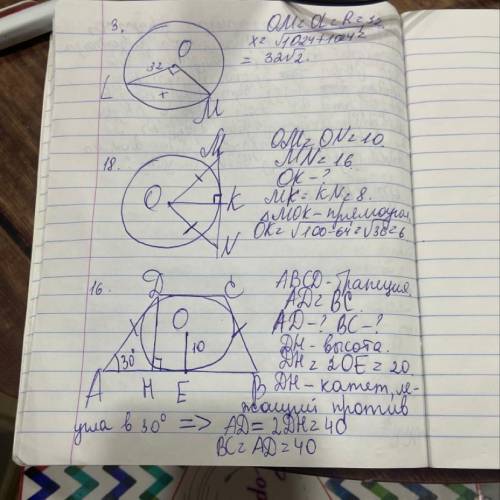 3.
O
32
L
x
M
OM = OL = R = 32
x = √1024+1024 =
= 32√2.
18.
M
O
K
N
OM = ON = 10.
MN = 16.
OK - ?
MK = KN = 8.
△MOK - прямоугол.
OK = √100-64 = √36 = 6
16.
D
C
O
10
30°
A
H
E
B
ABCD - трапеция.
AD = BC.
AD - ? BC - ?
DH - высота.
DH = 2OE = 20.
DH - катет, ле-
жащий против
угла в 30° => AD = 2DH = 40
BC = AD = 40